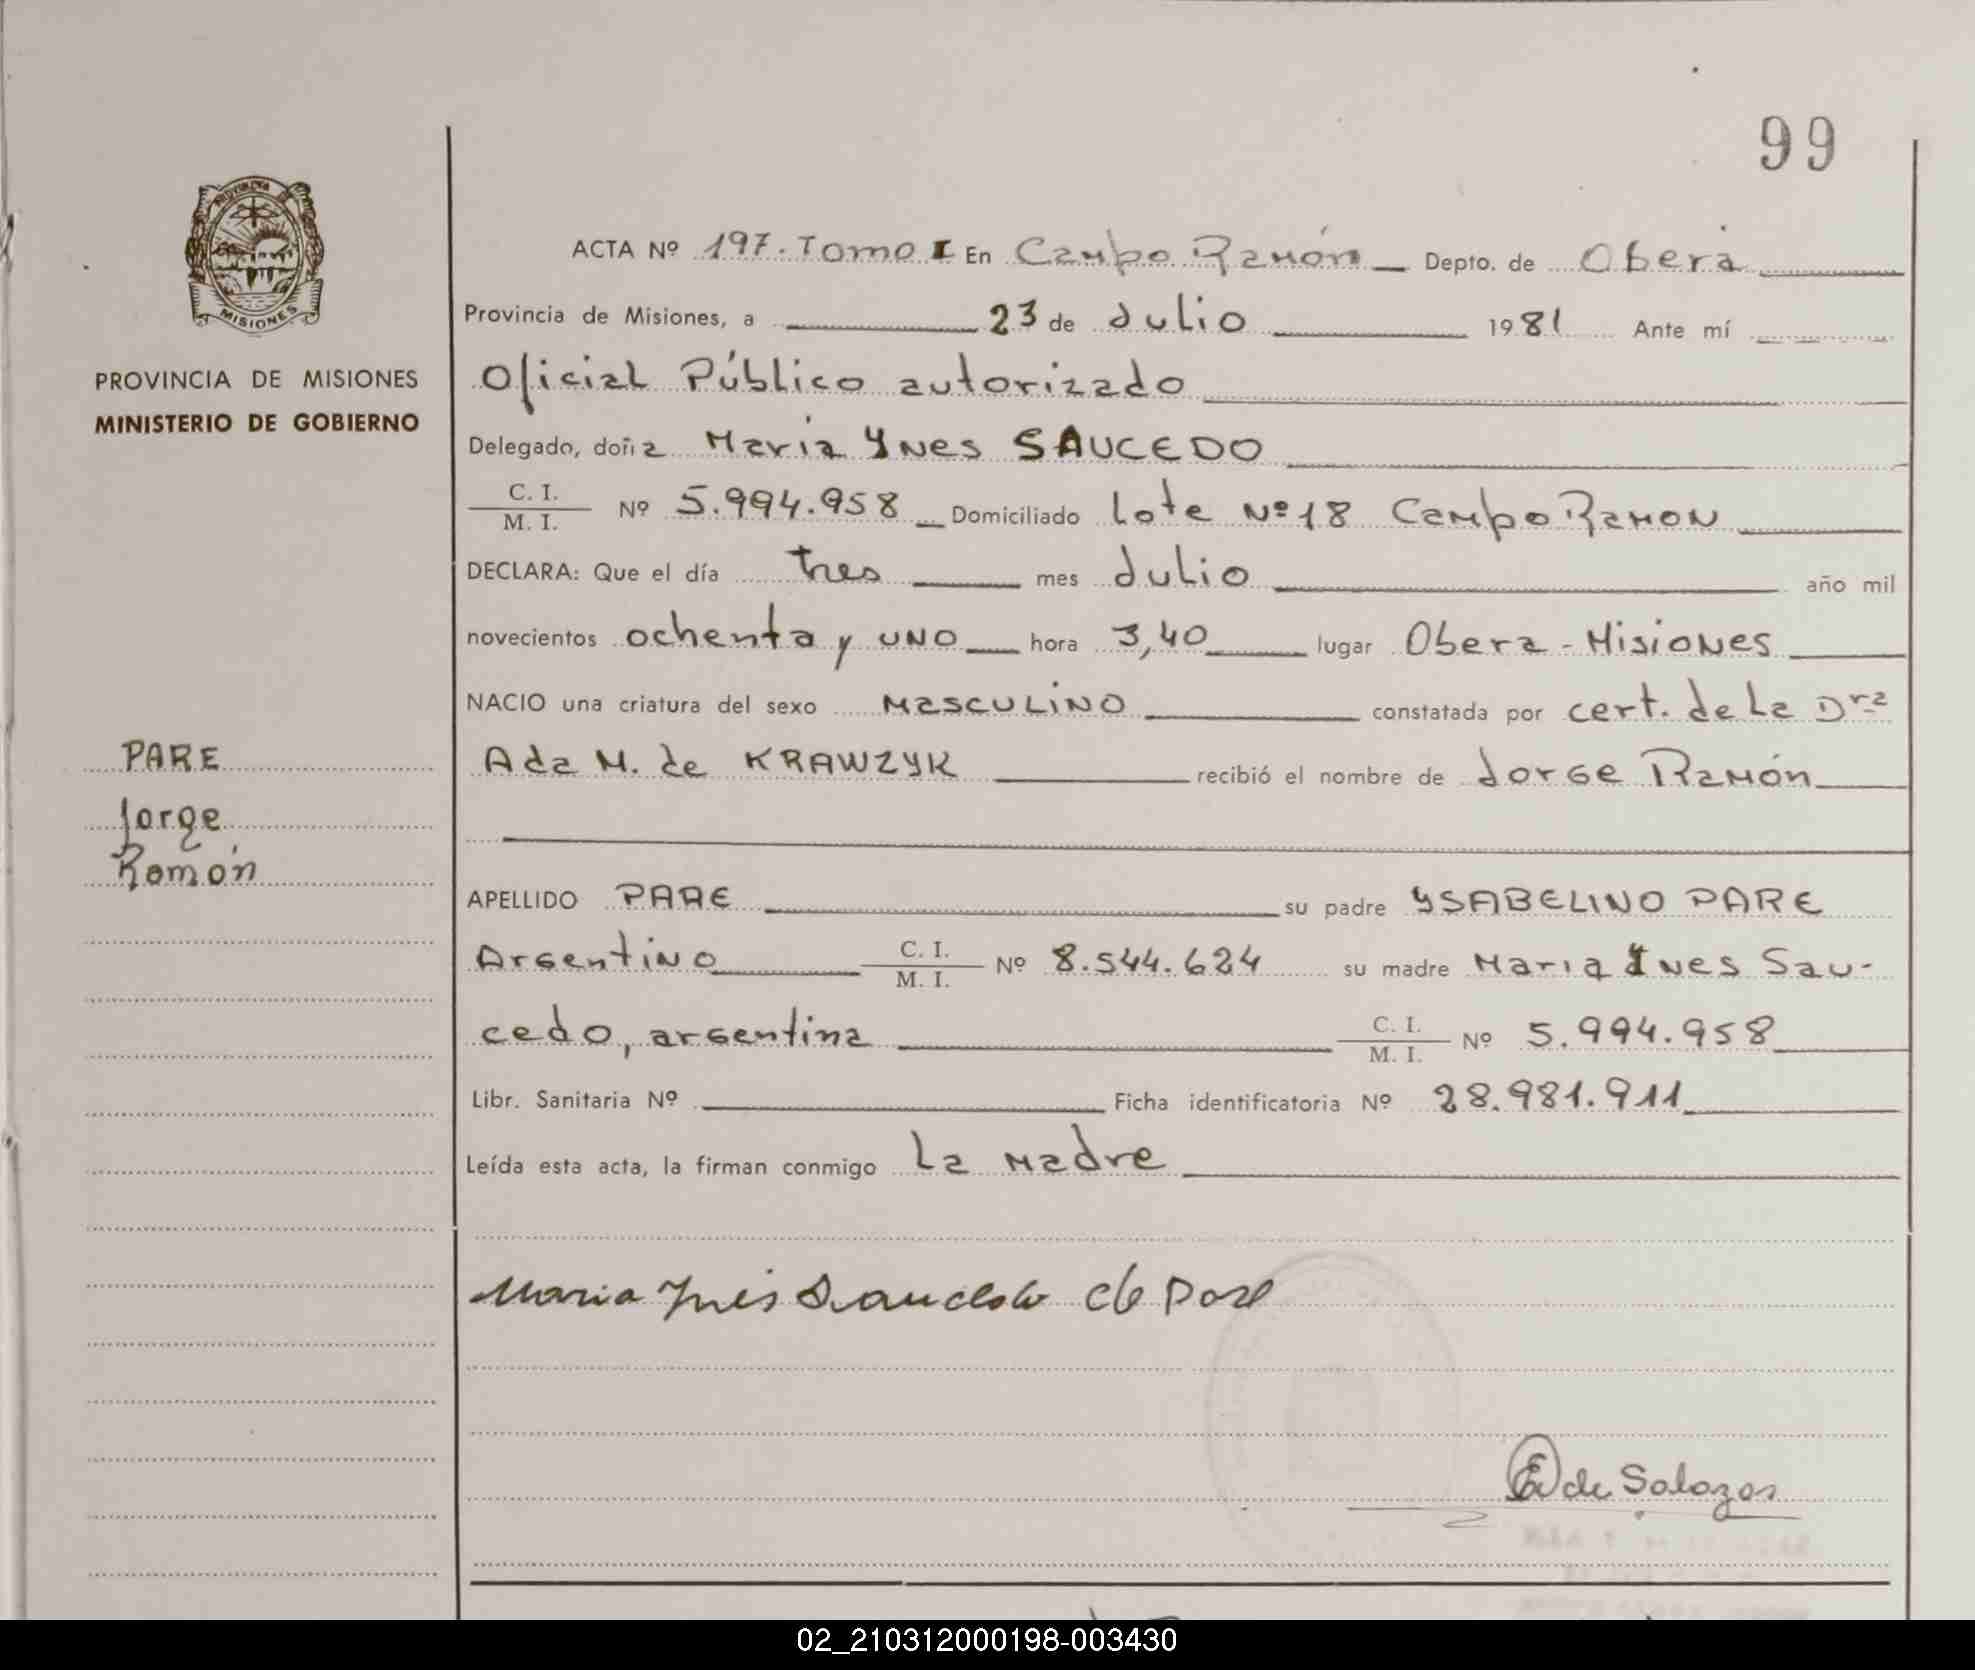 99
PROVINCIA DE
MISIONES
PROVINCIA DE MISIONES
MINISTERIO DE GOBIERNO
PARE
Jorge
Ramón
ACTA Nº 197. Tomo I En Campo Ramón Depto. de Oberá
Provincia de Misiones, a 23 de Julio 1981 Ante mí
Oficial Público autorizado
Delegado, doña Maria Ynes SAUCEDO
C. I.
M. I. Nº 5.994.958 Domiciliado Lote Nº 18 Campo Ramon
DECLARA: Que el día tres mes Julio año mil
novecientos ochenta y uno hora 3,40 lugar Obera - Misiones
NACIO una criatura del sexo Masculino constatada por cert. de La Dra
Ada M. de KRAWZYK recibió el nombre de Jorge Ramón
APELLIDO PARE su padre YSABELINO PARE
Argentino C. I.
M. I. Nº 8.544.624 su madre Maria Ynes Sau-
cedo, argentina C. I.
M. I. Nº 5.994.958
Libr. Sanitaria Nº Ficha identificatoria Nº 28.981.911
Leída esta acta, la firman conmigo La madre
Maria Ynes Saucedo de Pare
E de Salazar
02_210312000198-003430